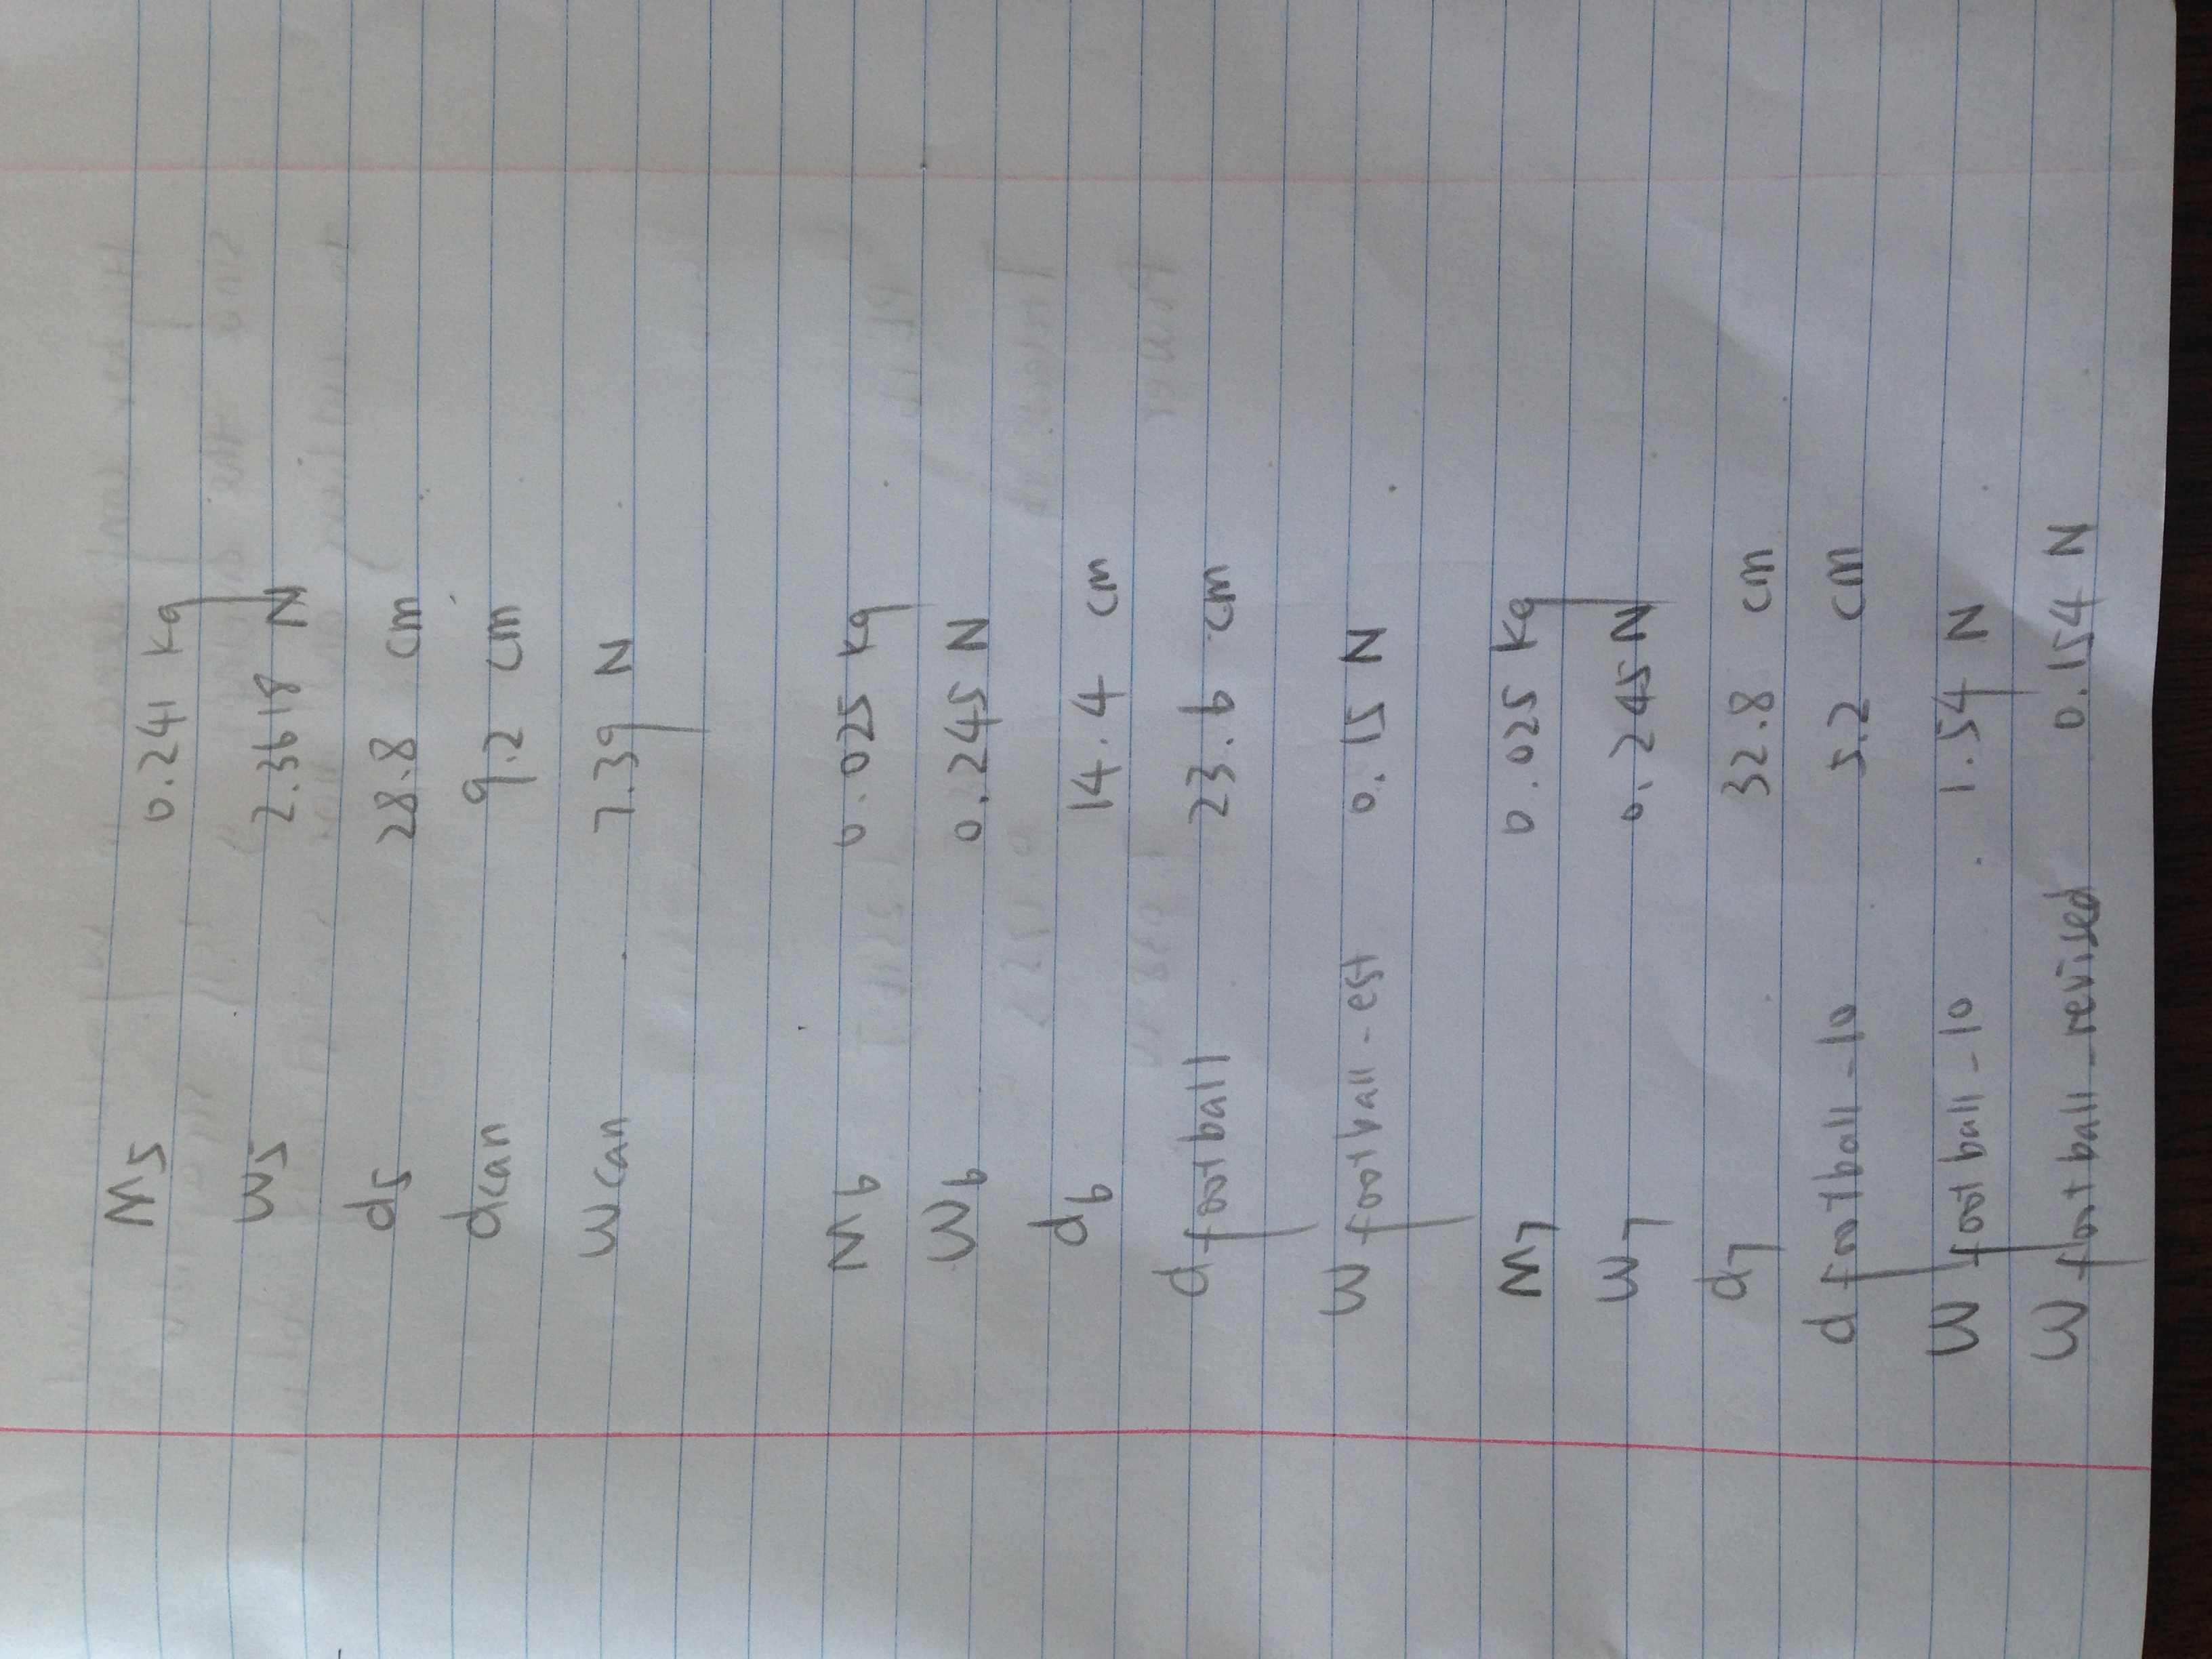 M5 0.241 kg
W5 2.3618 N
d5 28.8 cm
dcan 9.2 cm
Wcan 7.39 N
M6 0.025 kg
W6 0.245 N
d6 14.4 cm
d football 23.6 cm
W football-est 0.15 N
M7 0.025 kg
W7 0.245 N
d7 32.8 cm
d football-10 5.2 cm
W football-10 1.54 N
W football-revised 0.154 N